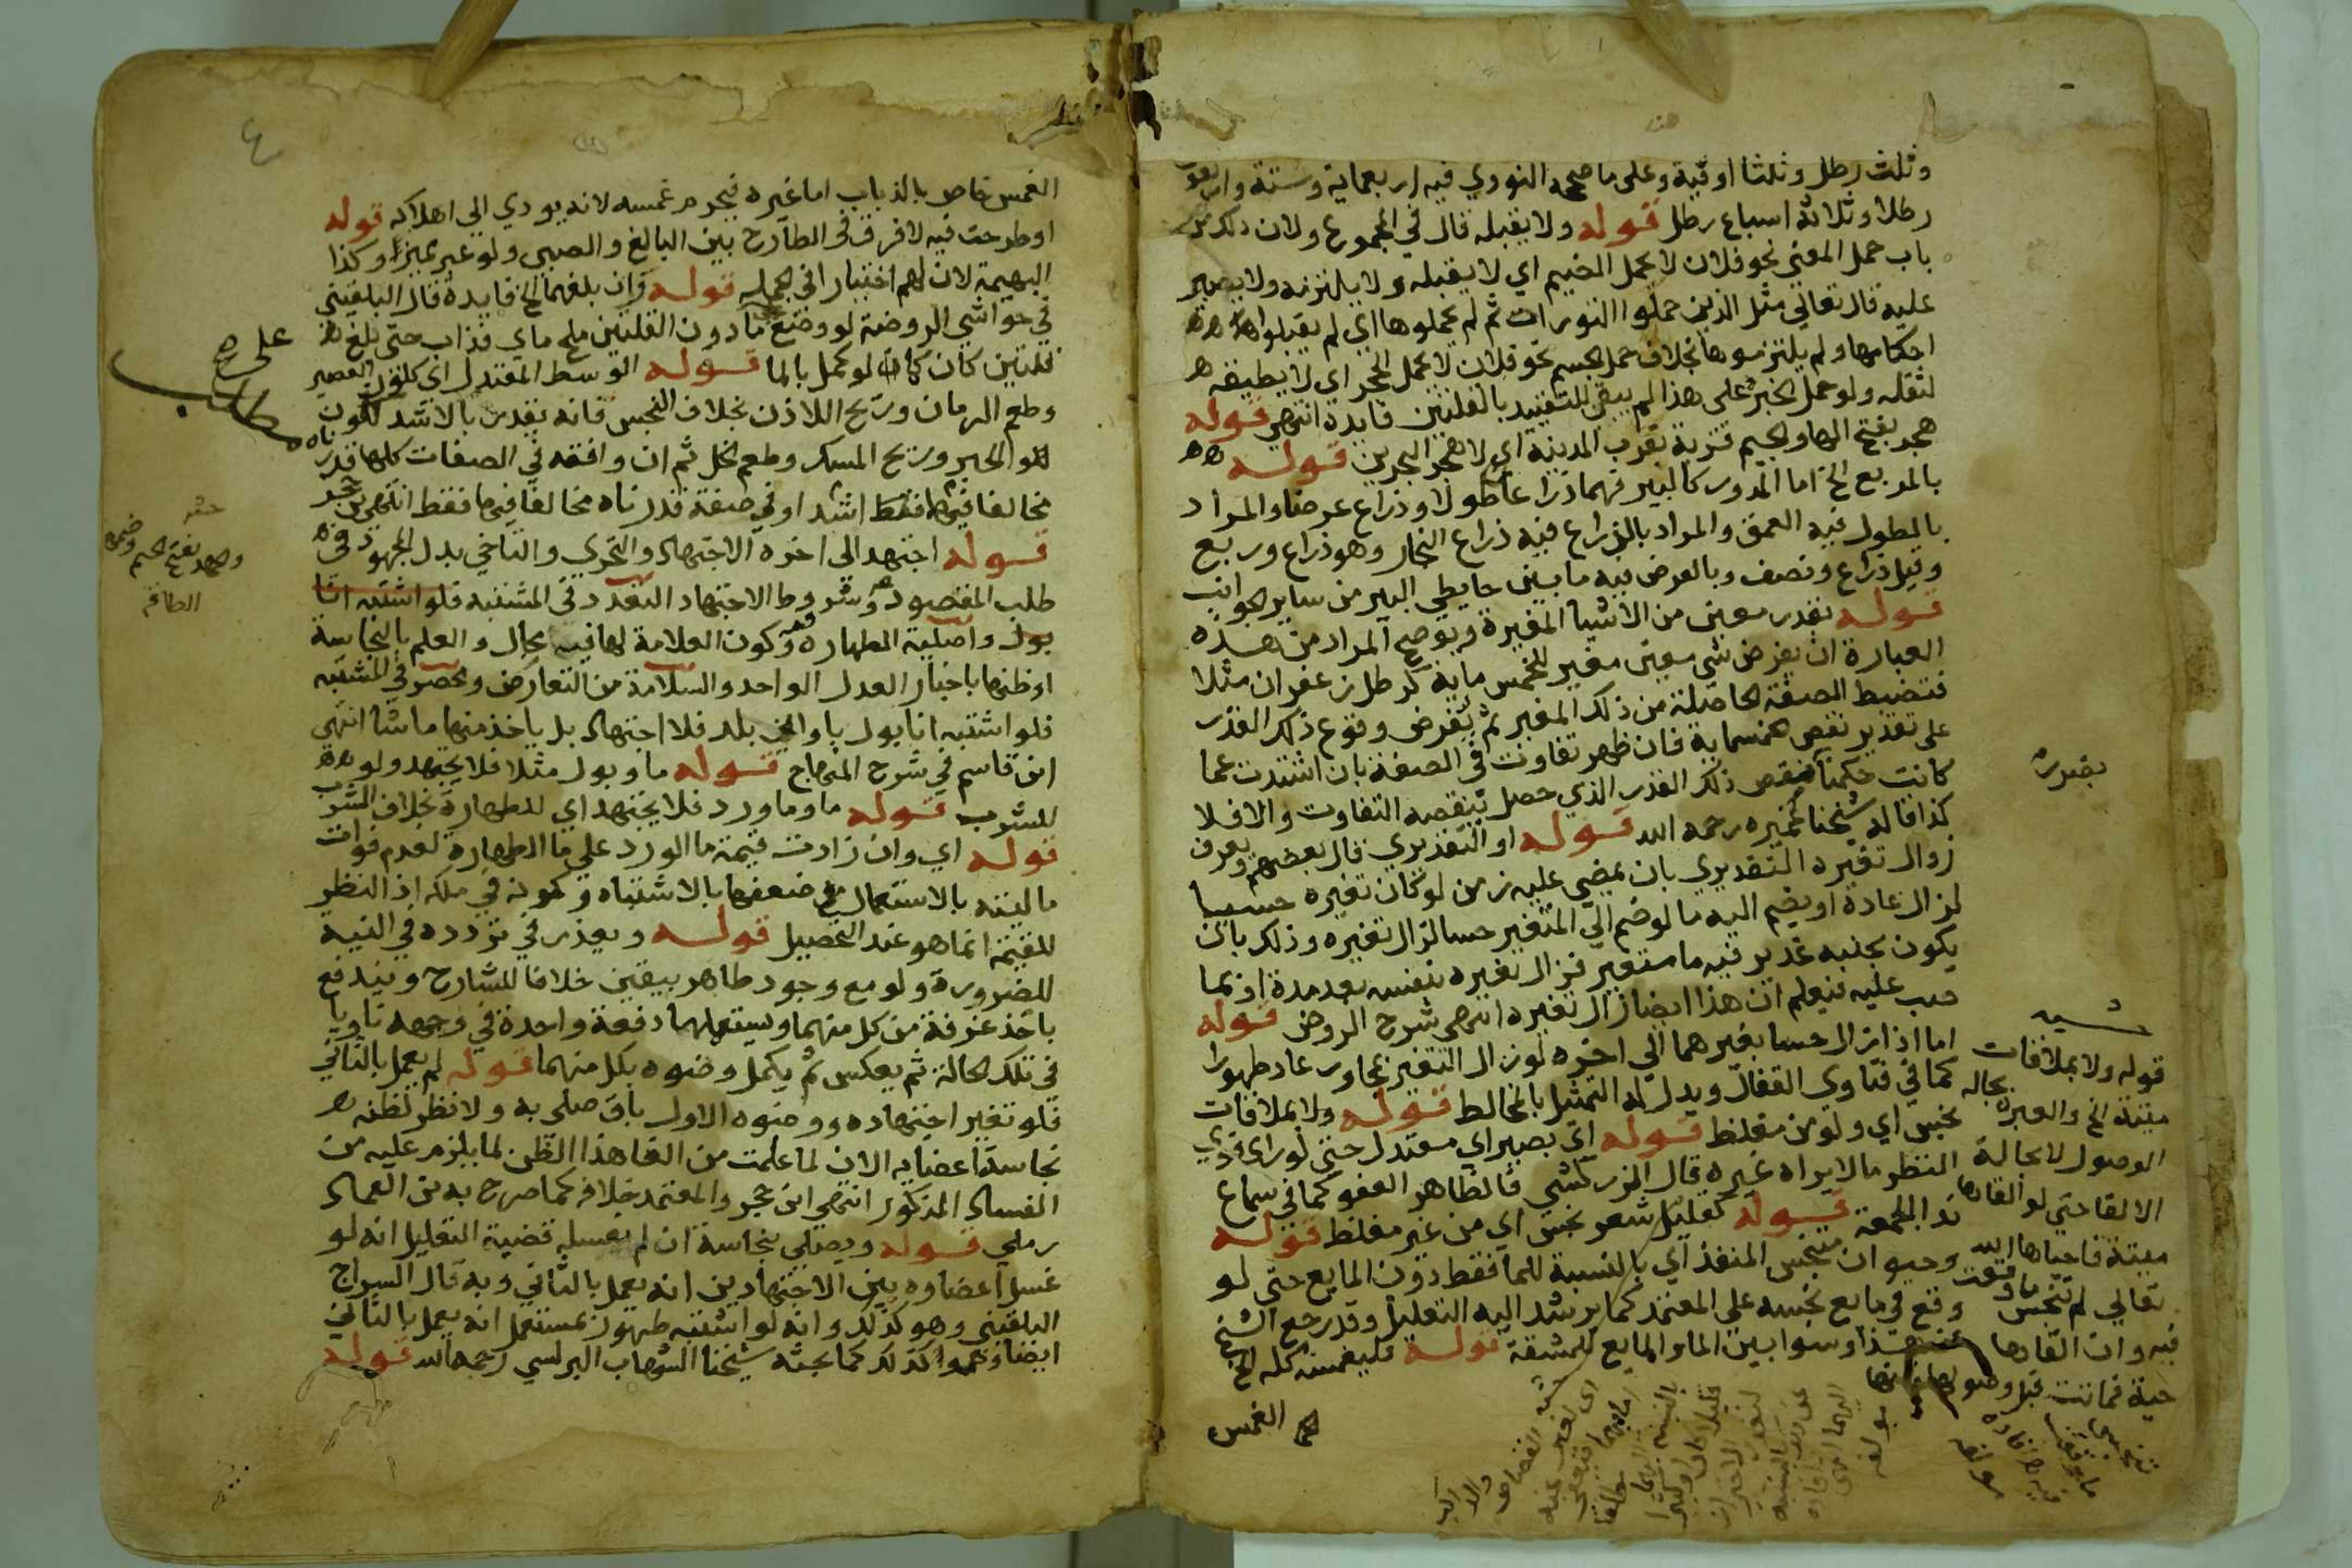 وثلث رطل وثلثا اوقية وعلى ما صححه النووي فيه اربعماية وستة واربعون
رطلا وثلاثة اسباع رطل قوله ولا يقبله قال في المجموع ولان ذلك من
باب حمل المعنى نحو فلان لا يحمل الضيم اي لا يقبله ولا يلتزمه ولا يصبر
عليه قال تعالي مثل الذين حملوا التورات ثم لم يحملوها اي لم يقبلوا
احكامها ولم يلتزموها بخلاف حمل الجسم نحو فلان لا يحمل الحجر اي لا يطيقه
لثقله ولو حمل الخبر على هذا لم يبق للتقييد بالقلتين فايدة انتهى قوله
هجر بفتح الها والجيم قرية بقرب المدينة اي لا هجر البحرين قوله
بالمربع الخ اما المدور كالبير فهما ذراعان طولا وذراع عرضا والمراد
بالطول فيه العمق والمراد بالذراع فيه ذراع النجار وهو ذراع وربع
وقيل ذراع ونصف وبالعرض فيه ما بين حايطي البير من ساير الجوانب
قوله بقدر معين من الاشيا المغيرة وتوضيح المراد من هذه
العبارة ان يفرض شي معين مغير للخمس ماية كرطل زعفران مثلا
فتضبط الصفة الحاصلة من ذلك المغير ثم يفرض وقوع ذلك القدر
على تقدير نقص خمسماية فان ظهر تفاوت في الصفة بان اشتدت عما
كانت حكمنا بنقص ذلك القدر الذي حصل بنقصه التفاوت والا فلا
كذا قاله شيخنا عميره رحمه الله قوله او التقديري قال بعضهم ويعرف
زوال تغيره التقديري بان يمضي عليه زمن لو كان تغيره حسيا
لزال عادة او يضم اليه ما لو ضم الي المتغير حسا لزال تغيره وذلك بان
يكون بجنبه غدير فيه ما متغير فزال تغيره بنفسه بعد مدة او بما
صب عليه فيعلم ان هذا ايضا زال تغيره انتهى شرح الروض قوله
اما اذا زال حسا بغيرهما الى اخره لو زال التغير بمجاور عاد طهورا
كما في فتاوي القفال ويدل له التمثيل بالمخالط قوله ولا بملاقات
نجس اي ولو من مغلظ قوله اي بصير اي معتدل حتى لو راي قوي
النظر ما لا يراه غيره قال الزركشي فالظاهر العفو كما في سماع
ندا الجمعة قوله كقليل شعر نجس اي من غير مغلظ قوله
وحيوان متنجس المنفذ اي بالنسبة للما فقط دون المايع حتى لو
وقع في مايع نجسه على المعتمد كما يرشد اليه التعليل وقد رجع الشيخ
وسوا بين الما والمايع للمشقة قوله فليغمسه كله الخ
الغمس
بقدره
قوله ولا بملاقات
ميتة الخ والعبرة بحالة
الوصول لا بحالة
الالقا حتي لو القاها
ميتة فاحياها الله
تعالي لم تنجس ما وقعت
فيه وان القاها
حية فماتت قبل وصولها
٤
الغمس خاص بالذباب اما غيره فيحرم غمسه لانه يودي الي اهلاكه قوله
او طرحت فيه لا فرق في الطارح بين البالغ والصبي ولو غير مميز وكذا
البهيمة لان لهم اختيارا في الجملة قوله وان بلغهما الخ فايدة قال البلقيني
في حواشي الروضة لو وضع ما دون القلتين ملح ماي فذاب حتى بلغ
قلتين كان كما لو كمل بالما قوله الوسط المعتدل اي كلون العصير
وطعم الرمان وريح اللاذن بخلاف النجس فانه يقدر بالاشد كلون
الحبر وريح المسك وطعم الخل ثم ان وافقه في الصفات كلها قدرناه
مخالفا فيها اشد او في صفة قدرناه مخالفا فيها فقط انتهى بن حجر
قوله اجتهد الى اخره الاجتهاد والتحري والتاخي بذل المجهود في
طلب المقصود وشروط الاجتهاد التعدد في المشتبه فلو اشتبه انا
بول واصلية الطهارة وكون العلامة لها فيه مجال والعلم بالنجاسة
او ظنها باخبار العدل الواحد والسلامة من التعارض وحصر في المشتبه
فلو اشتبه انا بول باواني بلد فلا اجتهاد بل ياخذ منها ما شا انتهي
ابن قاسم في شرح المنهاج قوله ما وبول مثلا فلا يجتهد ولو
للشرب قوله ما وما ورد فلا يجتهد اي للطهارة بخلاف الشرب
قوله اي وان زادت قيمة ما الورد علي ما الطهارة لعدم فوات
ماليته بالاستعمال مع ضعفها بالاشتباه وكونه في ملكه اذ النظر
للقيمة انما هو عند التحصيل قوله ويعذر في تردده في النية
للضرورة ولو مع وجود طاهر بيقين خلافا للشارح ويندفع
باخذ غرفة من كل منهما ويستعملهما دفعة واحدة في وجهه ناويا
في تلك الحالة ثم يعكس ثم يكمل وضوه بكل منهما قوله لم يعمل بالثاني
فلو تغير اجتهاده ووضوه الاول باق صلى به ولا نظر لظنه
نجاسة اعضايه الان لما علمت من الغا هذا الظن لما يلزم عليه من
الفساد المذكور انتهي ابن حجر والمعتمد خلافه كما صرح به بن العماد
رملي قوله ويصلي بنجاسة ان لم يغسله قضية التعليل انه لو
غسل اعضاوه بين الاجتهادين انه يعمل بالثاني وبه قال السراج
البلقيني وهو كذلك وانه لو اشتبه طهور بمستعمل انه يعمل بالثاني
ايضا وهو كذلك كما بحثه شيخنا الشهاب البرلسي رحمه الله قوله
على
طالب
وجهد بفتح الجيم وضمها
الطاقة